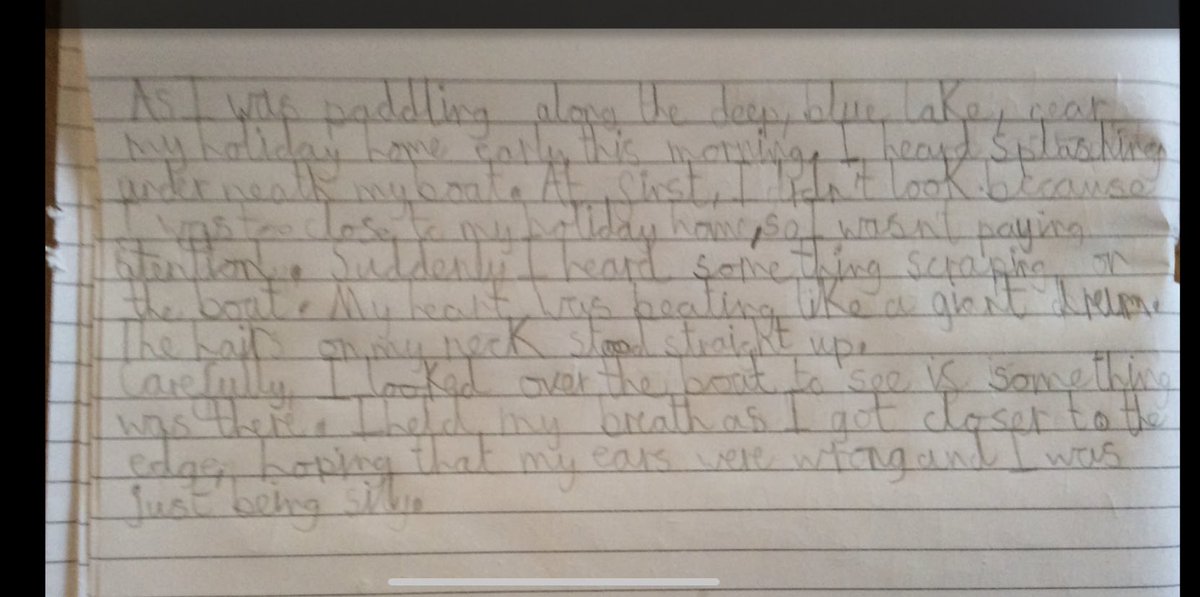 As I was paddling along the deep, blue lake, near
my holiday home early this morning, I heard splasching
underneath my boat. At first, I didn't look because
I was too close to my holiday home, so I wasn't paying
atention. Suddenly I heard something scraping on
the boat. My heart was beating like a giant
The hairs on my neck stood straight up.
Carefully, I looked over the boat to see if something
was there. I held my breath as I got closer to the
edge, hoping that my ears were wrong and I was
just being silly.